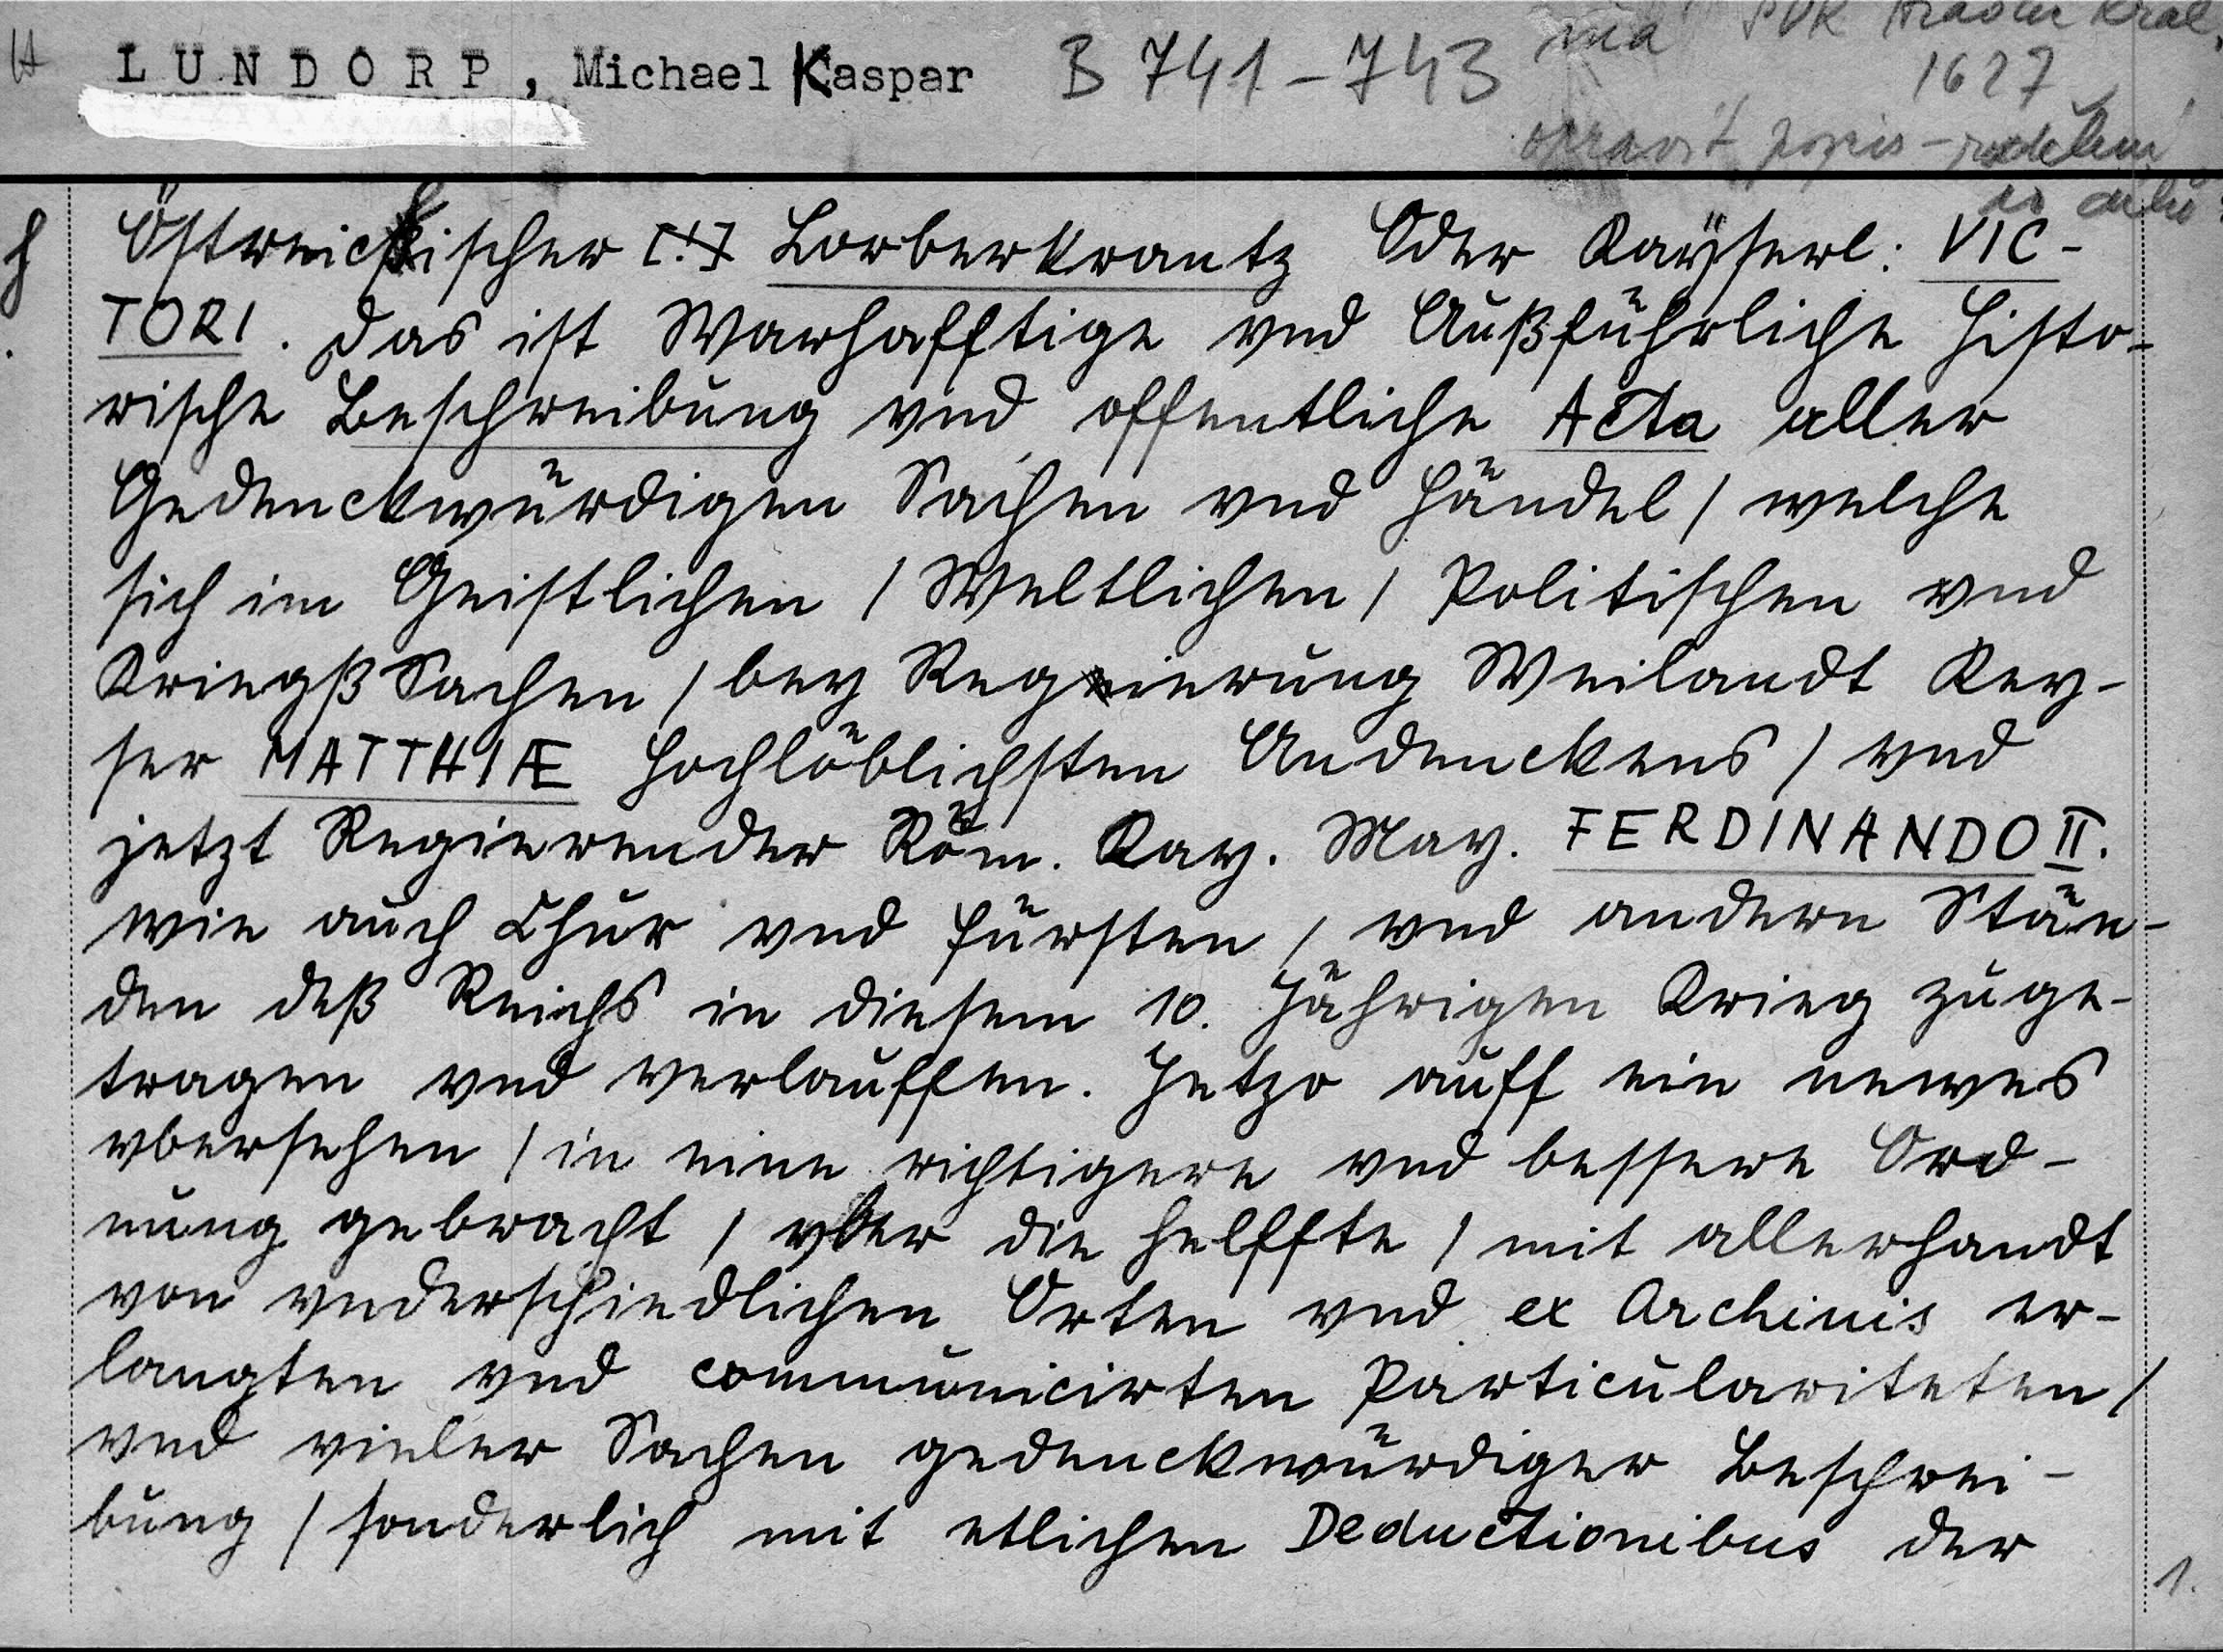 LUNDORP, Michael Kaspar B 741-743 má PDK Hradec Král.
1627
opravit popis - rozdělení
do dílů
Östreichischer [!] Lorberkrantz Oder Kaÿserl: VIC-
TORI. Das ist Warhafftige vnd Außfuͤhrliche Histo-
rische Beschreibung vnd offentliche Acta aller
Gedenckwuͤrdigen Sachen vnd Haͤndel / welche
sich im Geistlichen / Weltlichen / Politischen vnd
Kriegß Sachen / bey Regierung Weilandt Key-
ser MATTHIÆ Hochloͤblichsten Andenckens / vnd
jetzt Regierender Roͤm. Kay. May. FERDINANDO II.
wie auch Chur vnd Fuͤrsten / vnd andern Staͤn-
den deß Reichs in diesem 10. Jaͤhrigen Krieg zuge-
tragen vnd verlauffen. Jetzo auff ein newes
vbersehen / in eine richtigere vnd bessere Ord-
nung gebracht / vber die Helffte / mit allerhandt
von vnderschiedlichen Orten vnd ex Archiuis er-
langten vnd communicirten Particulariteten /
vnd vieler Sachen gedenckwuͤrdiger Beschrei-
bung / sonderlich mit etlichen Deductionibus der
1.